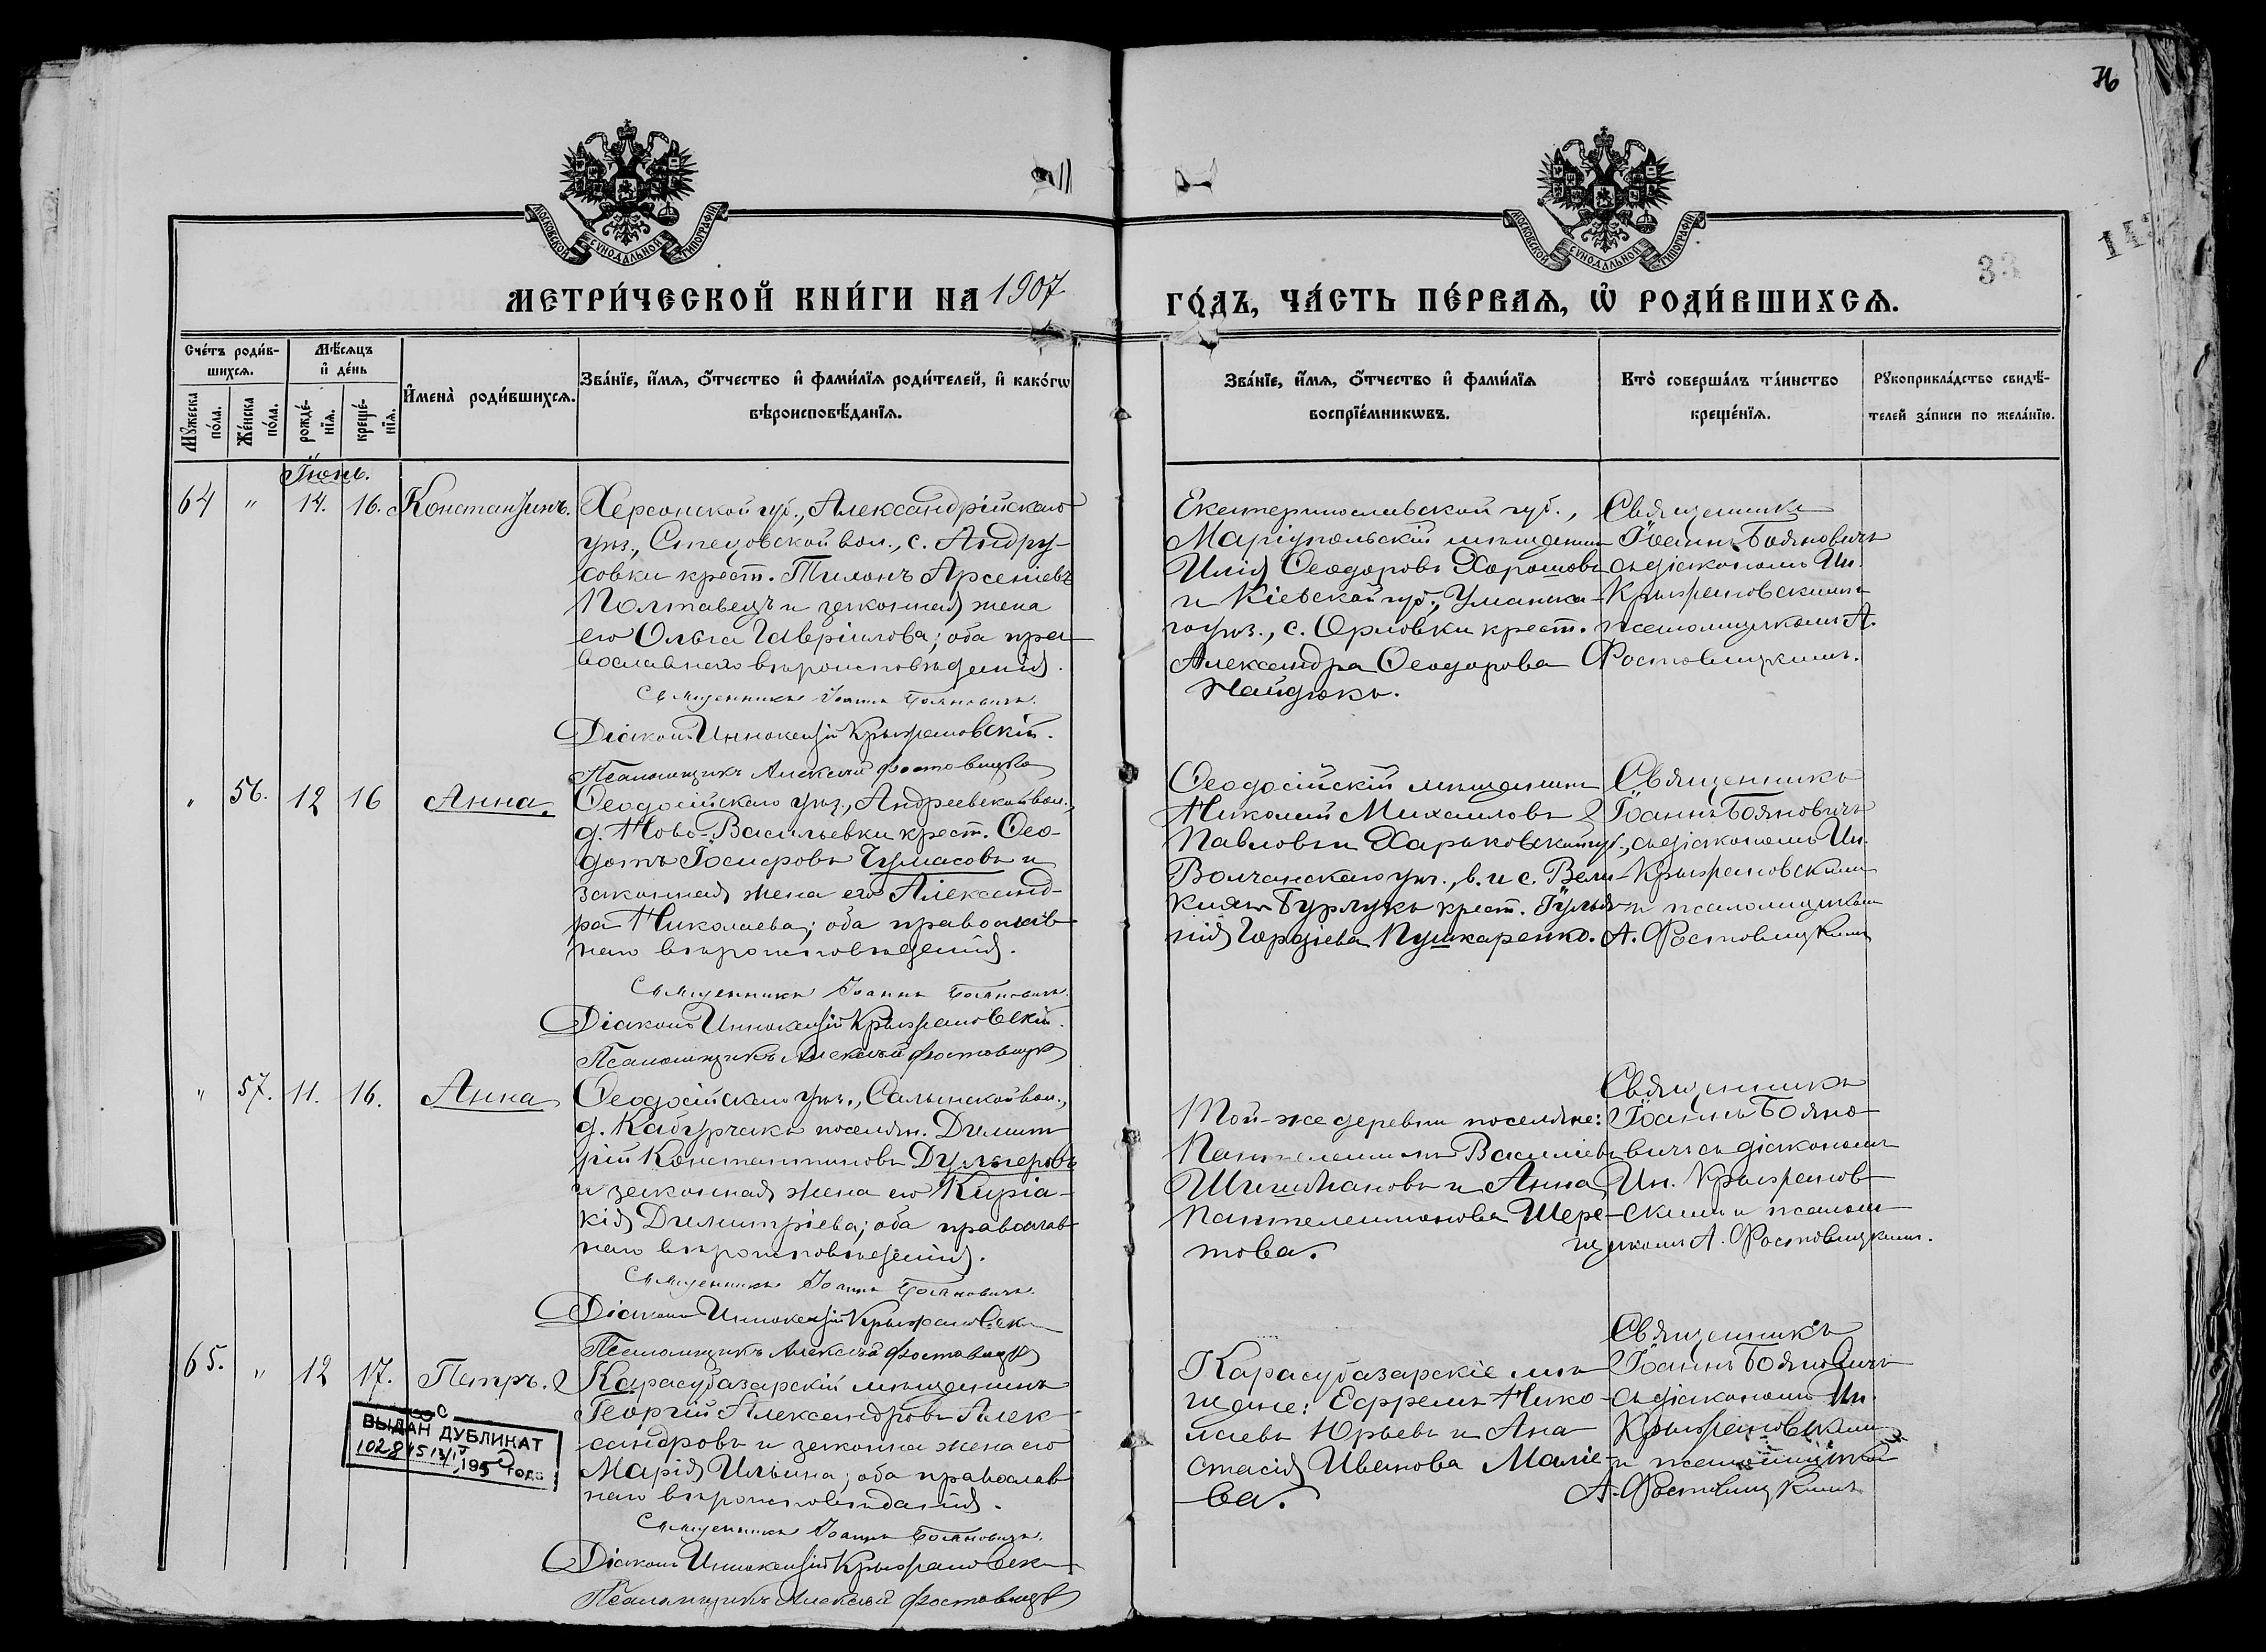 36
МОСКОВСКОЙ СѴНОДАЛЬНОЙ ТИПОГРАФІИ
МОСКОВСКОЙ СѴНОДАЛЬНОЙ ТИПОГРАФІИ
МЕТРИ́ЧЕСКОЙ КНИ́ГИ НА 1907
ГО́ДЪ, ЧА́СТЬ ПЕ́РВАѦ, Ѡ҆ РОДИ́ВШИХСѦ.
Сче́тъ роди́в-
шихсѧ.
Мѣ́сѧцъ
и҆ де́нь
Мꙋ́жеска
по́ла.
Же́нска
по́ла.
рожде́-
нїѧ.
креще́-
нїѧ.
И҆мена̀ роди́вшихсѧ.
Зва́нїе, и҆́мѧ, ѻ҆́тчество и҆ фами́лїѧ роди́телей, и҆ како́гѡ
вѣроисповѣ́данїѧ.
Зва́нїе, и҆́мѧ, ѻ҆́тчество и҆ фами́лїѧ
воспрїе́мникѡвъ.
Кто̀ соверша́лъ та́инство
креще́нїѧ.
Рꙋкоприкла́дство свидѣ́-
телей за́писи по жела́нїю.
Іюнь.
64 " 14. 16. Константинъ.
Херсонской губ., Александрійскаго
уѣз., Стецовской вол., с. Андру-
совки крест. Тихонъ Арсеніевъ
Полтавецъ и законная жена
его Ольга Гавріилова; оба пра-
вославнаго вѣроисповѣданія.
Священникъ Іоаннъ Бояновичъ.
Діаконъ Иннокентій Крыжановскій.
Псаломщикъ Алексѣй Фостовицкій
Екатеринославской губ.,
Маріупольскій мѣщанинъ
Илія Ѳеодоровъ Хорошовъ
и Кіевской губ., Уманска-
го уѣз., с. Орловки крест.
Александра Ѳеодорова
Найдюкъ.
Священникъ
Іоаннъ Бояновичъ
съ діакономъ Ин.
Крыжановскимъ и
псаломщикомъ А.
Фостовицкимъ.
" 56. 12 16 Анна.
Ѳеодосійскаго уѣз., Андреевской вол.,
д. Ново-Васильевки крест. Ѳео-
дотъ Іосифовъ Чумасовъ и
законная жена его Александ-
ра Николаева; оба православ-
наго вѣроисповѣданія.
Священникъ Іоаннъ Бояновичъ.
Діаконъ Иннокентій Крыжановскій.
Псаломщикъ Алексѣй Фостовицкій
Ѳеодосійскій мѣщанинъ
Николай Михаиловъ
Павловъ и Харьковской губ.,
Волчанскаго уѣз., в. и с. Вели-
кій Бурлукъ крест. Іуліа-
нія Гордіева Пушкаренко.
Священникъ
Іоаннъ Бояновичъ
съ діакономъ Ин.
Крыжановскимъ
и псаломщикомъ
А. Фостовицкимъ
" 57. 11. 16. Анна
Ѳеодосійскаго уѣз., Салынской вол.,
д. Кабурчакъ поселян. Димит-
рій Константиновъ Дульгеровъ
и законная жена его Киріа-
кія Димитріева; оба православ-
наго вѣроисповѣданія.
Священникъ Іоаннъ Бояновичъ.
Діаконъ Иннокентій Крыжановск
Псаломщикъ Алексѣй Фостовицкій
Той-же деревни поселяне:
Пантелеимонъ Василіевъ
Шишмановъ и Анна
Пантелеимонова Шере-
това.
Священникъ
Іоаннъ Бояно-
вичъ съ діакономъ
Ин. Крыжановс-
скимъ и псалом-
щикомъ А. Фостовицкимъ.
65. " 12 17. Петръ.
Карасубазарскій мѣщанинъ
Георгій Александровъ Алек-
сандровъ и законна жена его
Марія Ильина; оба православ-
наго вѣроисповѣданія.
Священникъ Іоаннъ Бояновичъ.
Діаконъ Иннокентій Крыжановск
Псаломщикъ Алексѣй Фостовицкій
Карасубазарскіе мѣ-
щане: Ефремъ Нико-
лаевъ Юрьевъ и Ана-
стасія Иванова Маліе-
ва.
Священникъ
Іоаннъ Бояновичъ
съ діакономъ Ин.
Крыжановскимъ
и псаломщикомъ
А. Фостовицкимъ
ВЫДАН ДУБЛИКАТ
195 года